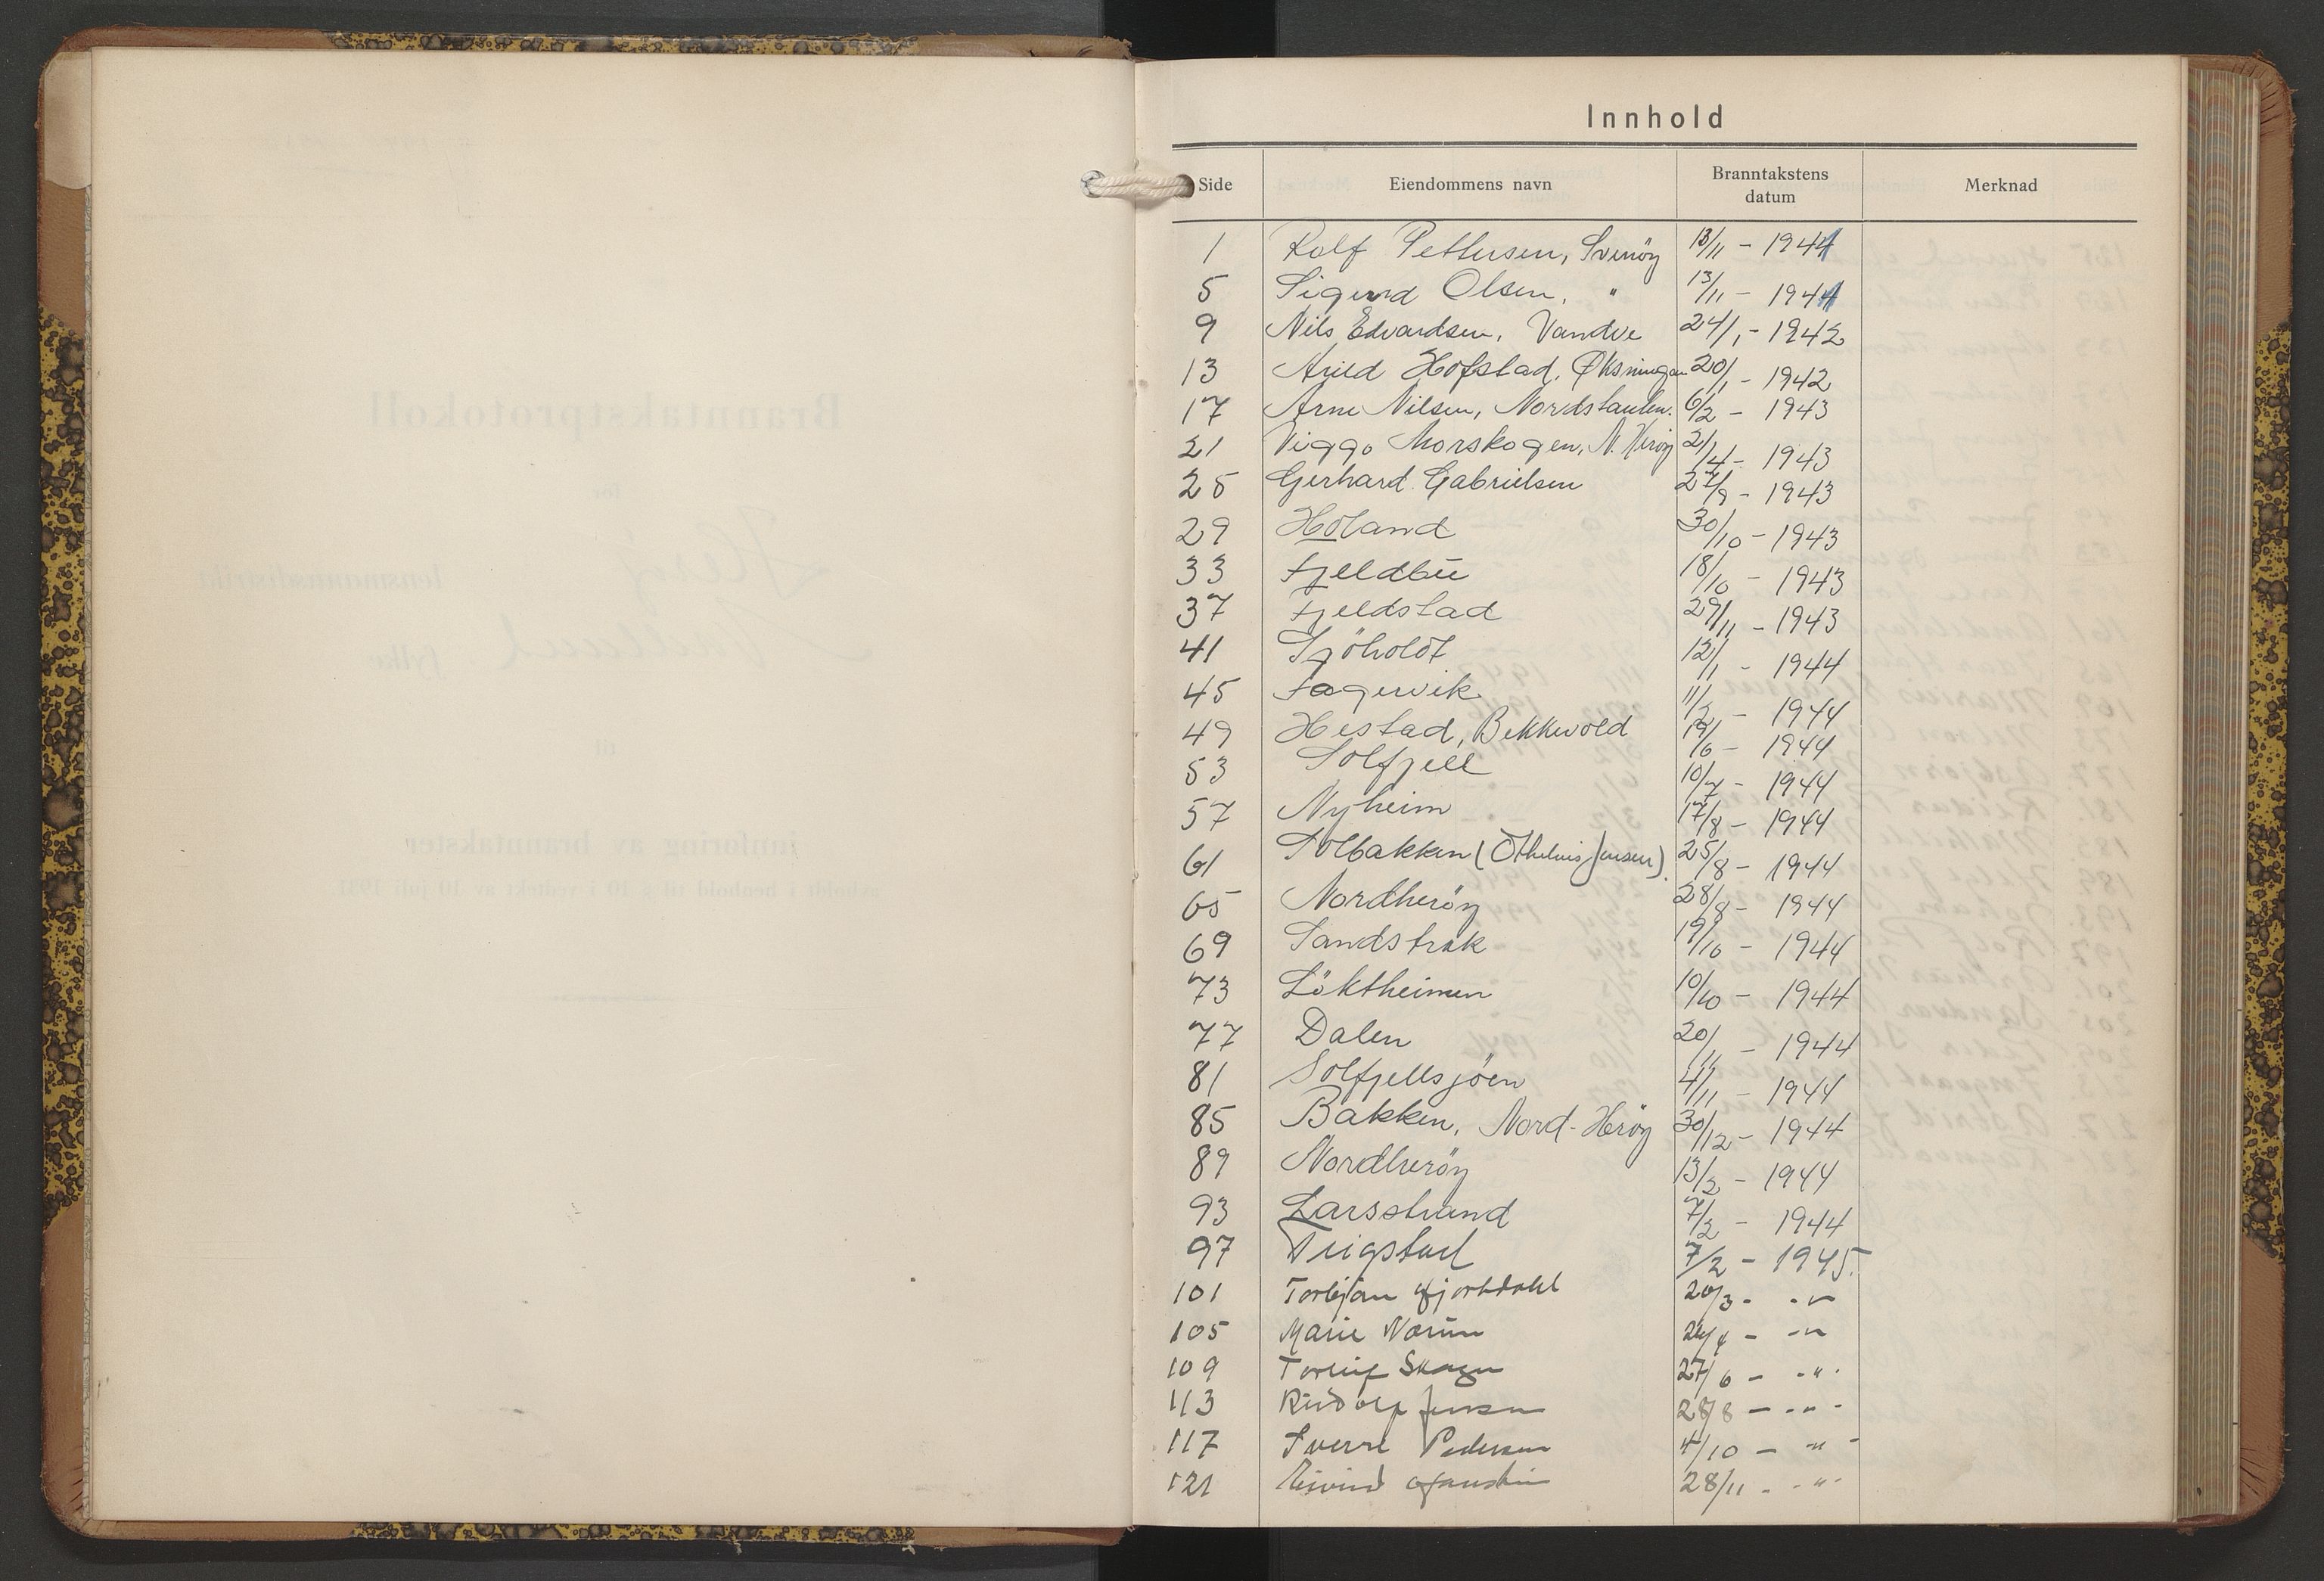 Innhold
Side Eiendommens navn Branntakstens datum Merknad
1 Rolf Pettersen, Svinöy 13/11 - 1941
5 Sigurd Olsen, " 13/11 - 1941
9 Nils Edvardsen, Vandve 24/1 - 1942
13 Arild Hofstad, Øksningan 20/1 - 1942
17 Arne Nilsen, Nordstaulen. 6/2 - 1943
21 Viggo Morskogen, N. Heröy 2/4 - 1943
25 Gerhard Gabrielsen 27/9 - 1943
29 Holand 30/10 - 1943
33 Fjeldbu 18/10 - 1943
37 Fjeldstad 29/11 - 1943
41 Sjöholdt 12/1 - 1944
45 Fagervik 11/2 - 1944
49 Hestad, Bekkevold 19/6 - 1944
53 Solfjell 10/7 - 1944
57 Nyheim 17/8 - 1944
61 Solbakken (Othelius Jensen). 25/8 - 1944
65 Nordheröy 28/8 - 1944
69 Sandstrak 19/10 - 1944
73 Löktheimen 10/10 - 1944
77 Dalen 20/11 - 1944
81 Solfjellsjöen 4/11 - 1944
85 Bakken, Nord-Heröy 30/12 - 1944
89 Nordheröy 13/2 - 1944
93 Larsstrand 7/2 - 1944
97 7/2 - 1945.
101 Torbjørn 20/3 - - " -
105 Marie - " -
109 Torleif Skagen 27/6 - - " -
113 Rudolf Jensen 28/8 - - " -
117 Sverre Pedersen 4/10 - " -
121 Eivind 28/11 - - " -